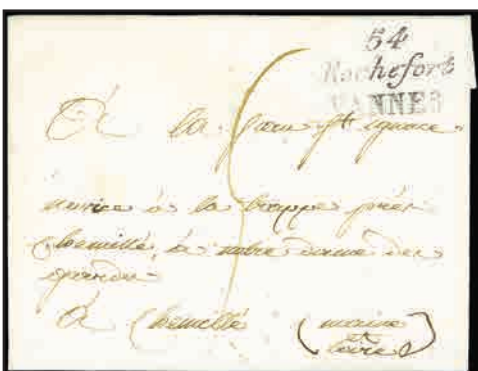 54
Rochefort
VANNES
À la Sœur St ignace
novice à la trappe près
Chemillé, à notre dame des
gardes
À Chemillé (maine
et
loire)